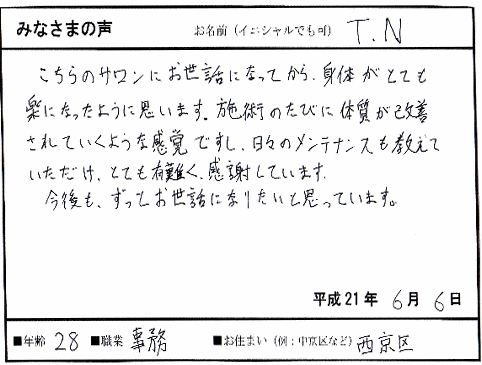 みなさまの声 お名前（イニシャルでも可） T.N
こちらのサロンにお世話になってから、身体がとても
楽になったように思います。施術のたびに体質が改善
されていくような感覚ですし、日々のメンテナンスも教えて
いただけ、とても有難く、感謝しています。
今後も、ずっとお世話になりたいと思っています。
平成21年 6月 6日
■年齢 28 ■職業 事務 ■お住まい（例：中京区など） 西京区